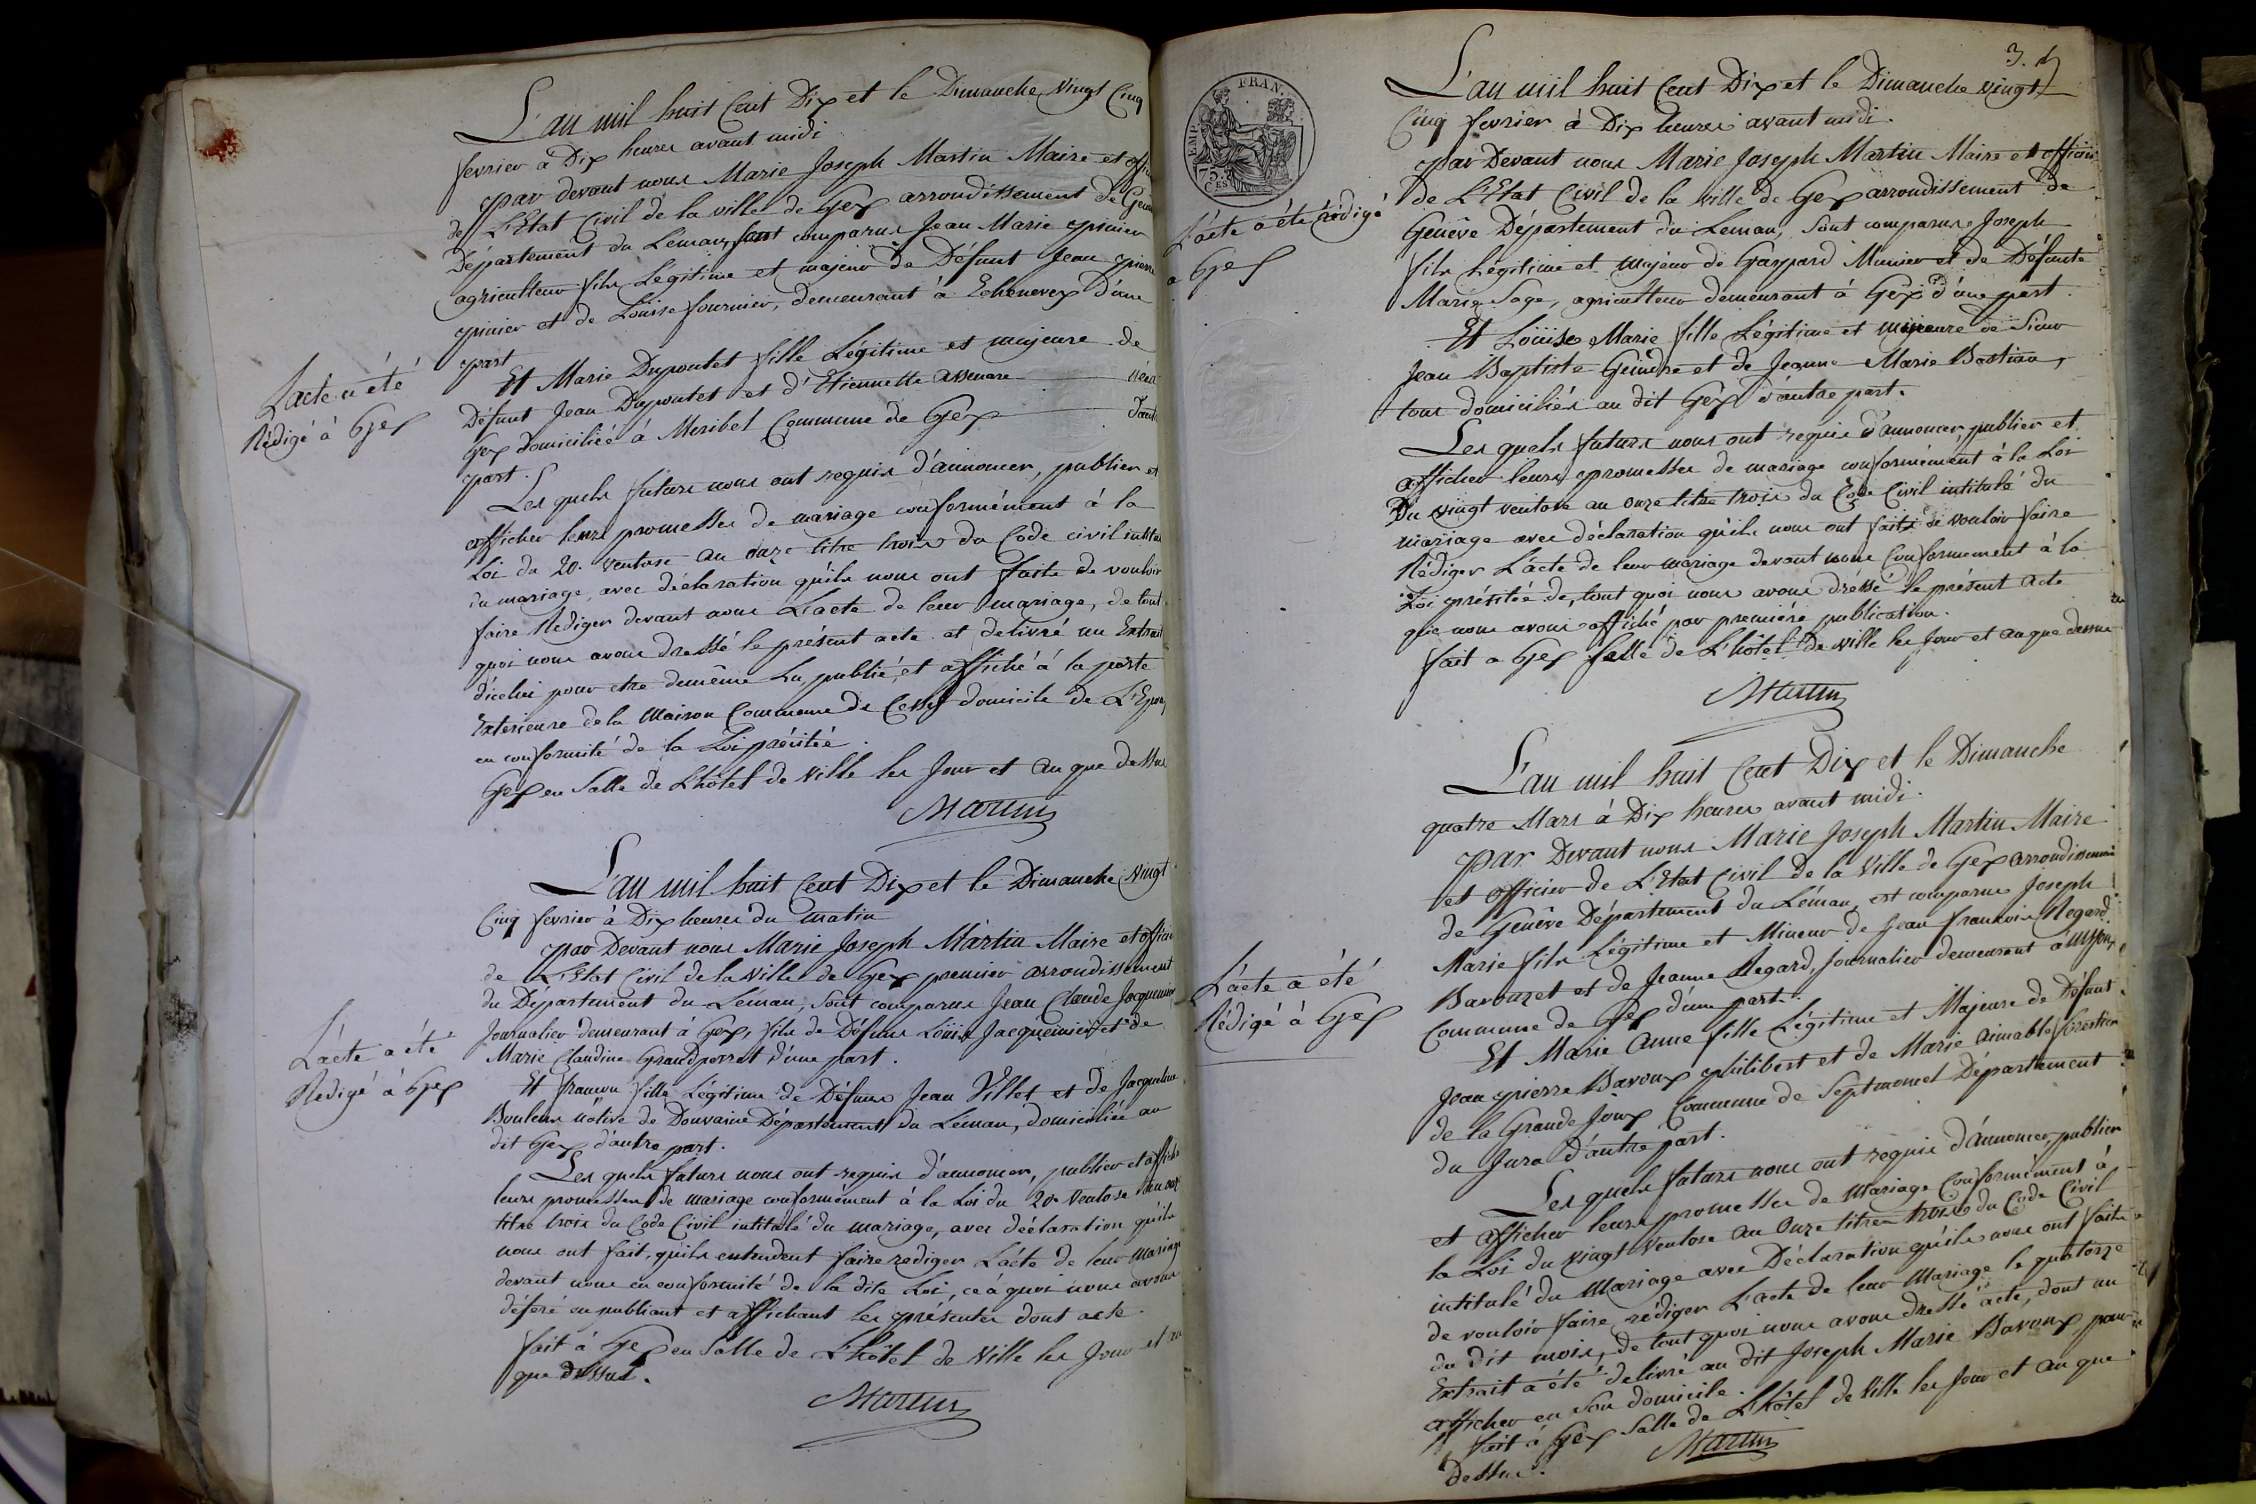 L'an mil huit Cent Dix et le Dimanche Vingt Cinq
fevrier à Dix heures avant midi
par devant nous Marie Joseph Martin Maire et offi
de L'Etat Civil de la ville de Gex arrondissement de
Département du Léman, sont comparus Jean Marie
agriculteur fils Légitime et majeur de Défunt Jean pierre
et de Louise fournier, demeurant à Echenevex D'une
part
Et Marie Dupontet fille Légitime et majeure de
Défunt Jean Dupontet et d'Etiennette
Gex Domiciliée à Meribel Commune de Gex
part.
L'acte a été
Rédigé à Gex
Les quels futurs nous ont requis d'annoncer, publier et
afficher leurs promesses de mariage conformément à la
Loi du 20. Ventose an onze titre trois du Code civil
du mariage, avec déclaration qu'ils nous ont faite de vouloir
faire Rediger devant nous L'acte de leur mariage, de tout
quoi nous avons dressé le présent acte et delivré un Extrait
d'icelui pour etre demême Lu, publié, et affiché à la porte
Exterieure de la Maison Commune de Cessy domicile de L'Epoux
en conformité de la Loi précitée.
Gex en Salle de L'hôtel de Ville les Jour et an que dessus
Martin
L'an mil huit Cent Dix et le Dimanche Vingt
Cinq fevrier à Dix heures du matin
par Devant nous Marie Joseph Martin Maire et offici
de L'Etat Civil de la Ville de Gex premier arrondissement
du Département du Léman, sont comparus Jean Claude Jacquemier
Journalier demeurant à Gex, fils de Défunt Louis Jacquemier et de
Marie Claudine Grandperret d'une part.
L'acte a été
Redigé à Gex
Et fille Légitime de Défunt Jean Villet et de Jacqueline
native de Douvaine Département du Léman, domiciliée au
dit Gex d'autre part.
Les quels futurs nous ont requis d'annoncer, publier et affich
leurs promesses de mariage conformément à la Loi du 20. Ventose an
titre trois du Code Civil intitulé du mariage, avec déclaration qu'ils
nous ont fait, qu'ils entendent faire rediger L'acte de leur Mariage
devant nous en conformité de la dite Loi, ce à quoi nous avons
déféré en publiant et affichant les présentes dont acte.
fait à Gex en Salle de L'hôtel de Ville les Jour et an
que dessus.
Martin
3.
FRAN.
EMP.
75.
CES
L'an mil huit Cent Dix et le Dimanche vingt
Cinq fevrier à Dix heures avant midi.
par Devant nous Marie Joseph Martin Maire et officier
de L'Etat Civil de la Ville de Gex arrondissement de
Genêve Département du Leman, Sont comparus Joseph
fils Légitime et Majeur de Gaspard Munier et de Défunte
Marie Sage, agriculteur demeurant à Gex d'une part.
L'acte a été rédigé
a Gex
Et Louise Marie fille Légitime et majeure de Sieur
Jean Baptiste Geindre et de Jeanne Marie Bastian,
tous domiciliés au dit Gex d'autre part.
Les quels futurs nous ont requis d'annoncer, publier et
afficher leurs promesses de mariage conformément à la Loi
Du vingt ventose an onze titre trois du Code Civil intitulé du
mariage avec déclaration qu'ils nous ont faite de vouloir faire
Rédiger L'acte de leur mariage devant nous Conformement à la
Loi précitée de, tout quoi nous avons dréssé le présent acte
que nous avons affiché par première publication.
fait a Gex salle de L'hôtel de ville les Jour et an que dessus
Martin
L'an mil huit Cent Dix et le Dimanche
quatre Mars à Dix heures avant midi.
Par Devant nous Marie Joseph Martin Maire
et officier de L'Etat Civil de la Ville de Gex arrondissement
de Genêve Département du Léman, est comparus Joseph
Marie fils Légitime et Mineur de Jean francois Regard
et de Jeanne Regard, Journalier demeurant à
Commune de Gex d'une part.
L'acte a été
Rédigé à Gex
Et Marie Anne fille Légitime et Majeure de Défunt
Jean pierre Bavoux philibert et de Marie Aimable
de la Grande Joux Commune de Septmoncel Département
du Jura d'autre part.
Les quels futurs nous ont requis d'annoncer, publier
et afficher leurs promesses de Mariage Conformément à
la Loi du vingt Ventose an Onze titre trois du Code Civil
intitulé du Mariage avec Déclaration qu'ils nous ont faite
de vouloir faire rédiger L'acte de leur Mariage le quatorze
du dit mois, de tout quoi nous avons dressé acte, dont un
Extrait a été delivré au dit Joseph Marie Bavoux pour
afficher en Son domicile.
fait à Gex Salle de L'hôtel de Ville les Jour et an que
Dessus.
Martin